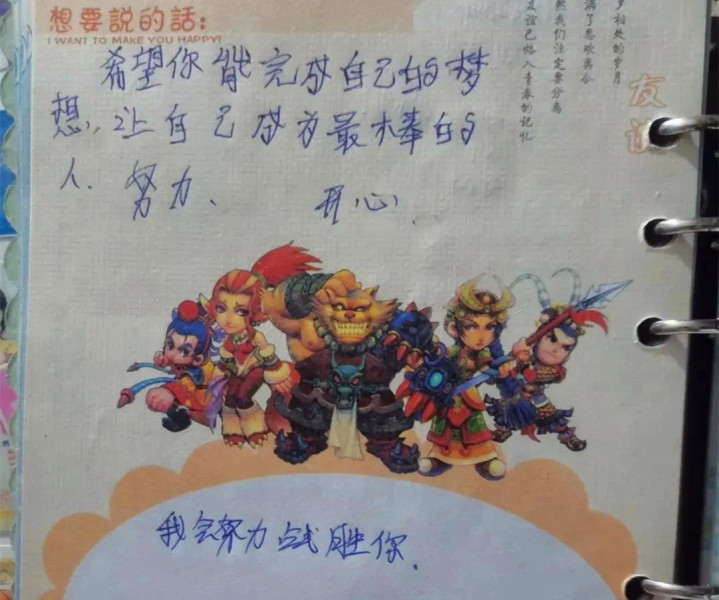 想要說的話:
I WANT TO MAKE YOU HAPPY!
希望你能完成自己的梦
想,让自己成为最棒的
人. 努力、 开心.
我会努力战胜你.
相处的岁月
满了悲欢离合
然我们注定要分离
友谊已烙入青春的记忆
友谊